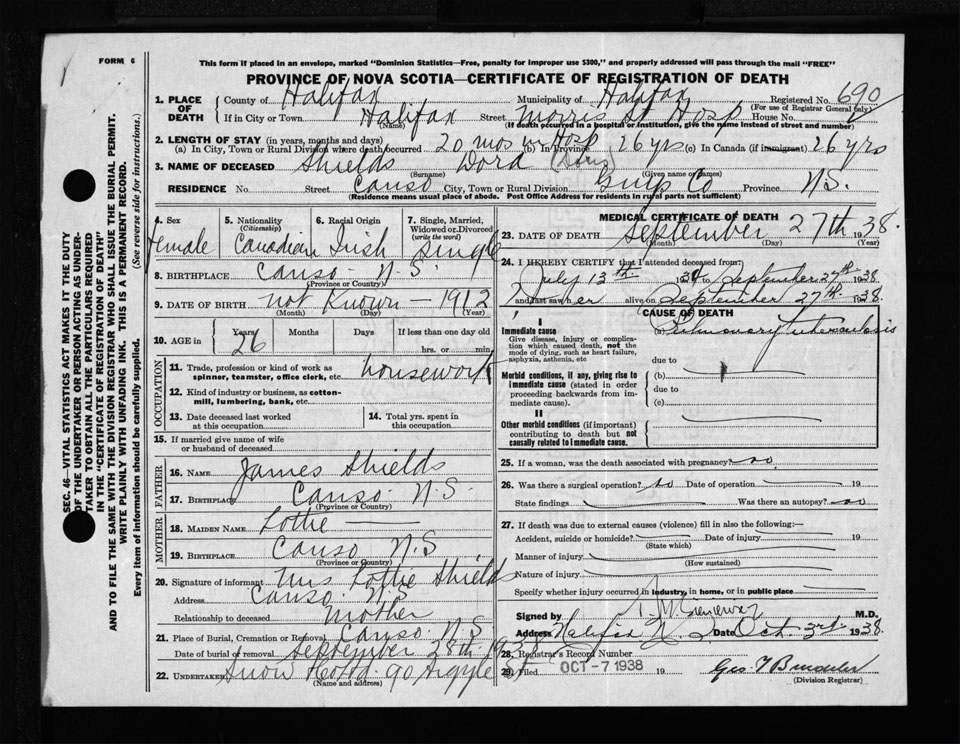 FORM 6
This form if placed in an envelope, marked "Dominion Statistics—Free, penalty for improper use $300," and properly addressed will pass through the mail "FREE"
PROVINCE OF NOVA SCOTIA—CERTIFICATE OF REGISTRATION OF DEATH
1. PLACE OF DEATH County of Halifax Municipality of Halifax Registered No. 690
(For use of Registrar General only)
If in City or Town Halifax Street Morris St Hosp House No.
(Name) (If death occurred in a hospital or institution, give the name instead of street and number)
2. LENGTH OF STAY (in years, months and days)
(a) In City, Town or Rural Division where death occurred 20 mos Hosp (b) In Province 26 yrs (c) In Canada (if immigrant) 26 yrs
3. NAME OF DECEASED Shields Dora (Doris)
(Surname) (Given name or names)
RESIDENCE No. Street Canso City, Town or Rural Division Guys Co Province N.S.
(Residence means usual place of abode. Post Office Address for residents in rural parts not sufficient)
4. Sex female
5. Nationality (Citizenship) Canadian
6. Racial Origin Irish
7. Single, Married, Widowed or Divorced (write the word) single
8. BIRTHPLACE Canso N.S.
(Province or Country)
9. DATE OF BIRTH not Known – 1912
(Month) (Day) (Year)
10. AGE in Years 26 Months Days If less than one day old
hrs. or min.
OCCUPATION
11. Trade, profession or kind of work as spinner, teamster, office clerk, etc. housework
12. Kind of industry or business, as cotton-mill, lumbering, bank, etc.
13. Date deceased last worked at this occupation
14. Total yrs. spent in this occupation
15. If married give name of wife or husband of deceased
FATHER
16. NAME James Shields
17. BIRTHPLACE Canso N.S.
(Province or Country)
MOTHER
18. MAIDEN NAME Lottie —
19. BIRTHPLACE Canso N.S
(Province or Country)
20. Signature of informant Mrs Lottie Shields
Address Canso N.S
Relationship to deceased Mother
21. Place of Burial, Cremation or Removal Canso N.S
Date of burial or removal September 28th 1938
22. UNDERTAKER Snow Co Ltd. 90 Argyle St
(Name and address)
MEDICAL CERTIFICATE OF DEATH
23. DATE OF DEATH September 27th 1938.
(Month) (Day) (Year)
24. I HEREBY CERTIFY that I attended deceased from:
July 13th to September 27th 1938
and last saw her alive on September 27th 1938.
CAUSE OF DEATH
I
Immediate cause (a) Pulmonary tuberculosis
Give disease, injury or complication which caused death, not the mode of dying, such as heart failure, asphyxia, asthenia, etc
due to
Morbid conditions, if any, giving rise to immediate cause (stated in order proceeding backwards from immediate cause). (b)
due to
(c)
II
Other morbid conditions (if important) contributing to death but not causally related to immediate cause.
25. If a woman, was the death associated with pregnancy? no
26. Was there a surgical operation? no Date of operation 19
State findings Was there an autopsy? no
27. If death was due to external causes (violence) fill in also the following:—
Accident, suicide or homicide? Date of injury 19
(State which)
Manner of injury
(How sustained)
Nature of injury
Specify whether injury occurred in industry, in home, or in public place
Signed by M.D.
Address Halifax N.S. Date Oct. 3rd. 1938.
28. Registrar's Record Number
29. Filed OCT - 7 1938
(Division Registrar)
SEC. 46—VITAL STATISTICS ACT MAKES IT THE DUTY
OF THE UNDERTAKER OR PERSON ACTING AS UNDER-
TAKER TO OBTAIN ALL THE PARTICULARS REQUIRED
IN THE "CERTIFICATE OF REGISTRATION OF DEATH"
AND TO FILE THE SAME WITH THE DIVISION REGISTRAR WHO SHALL ISSUE THE BURIAL PERMIT.
WRITE PLAINLY WITH UNFADING INK. THIS IS A PERMANENT RECORD.
Every item of information should be carefully supplied. (See reverse side for instructions.)